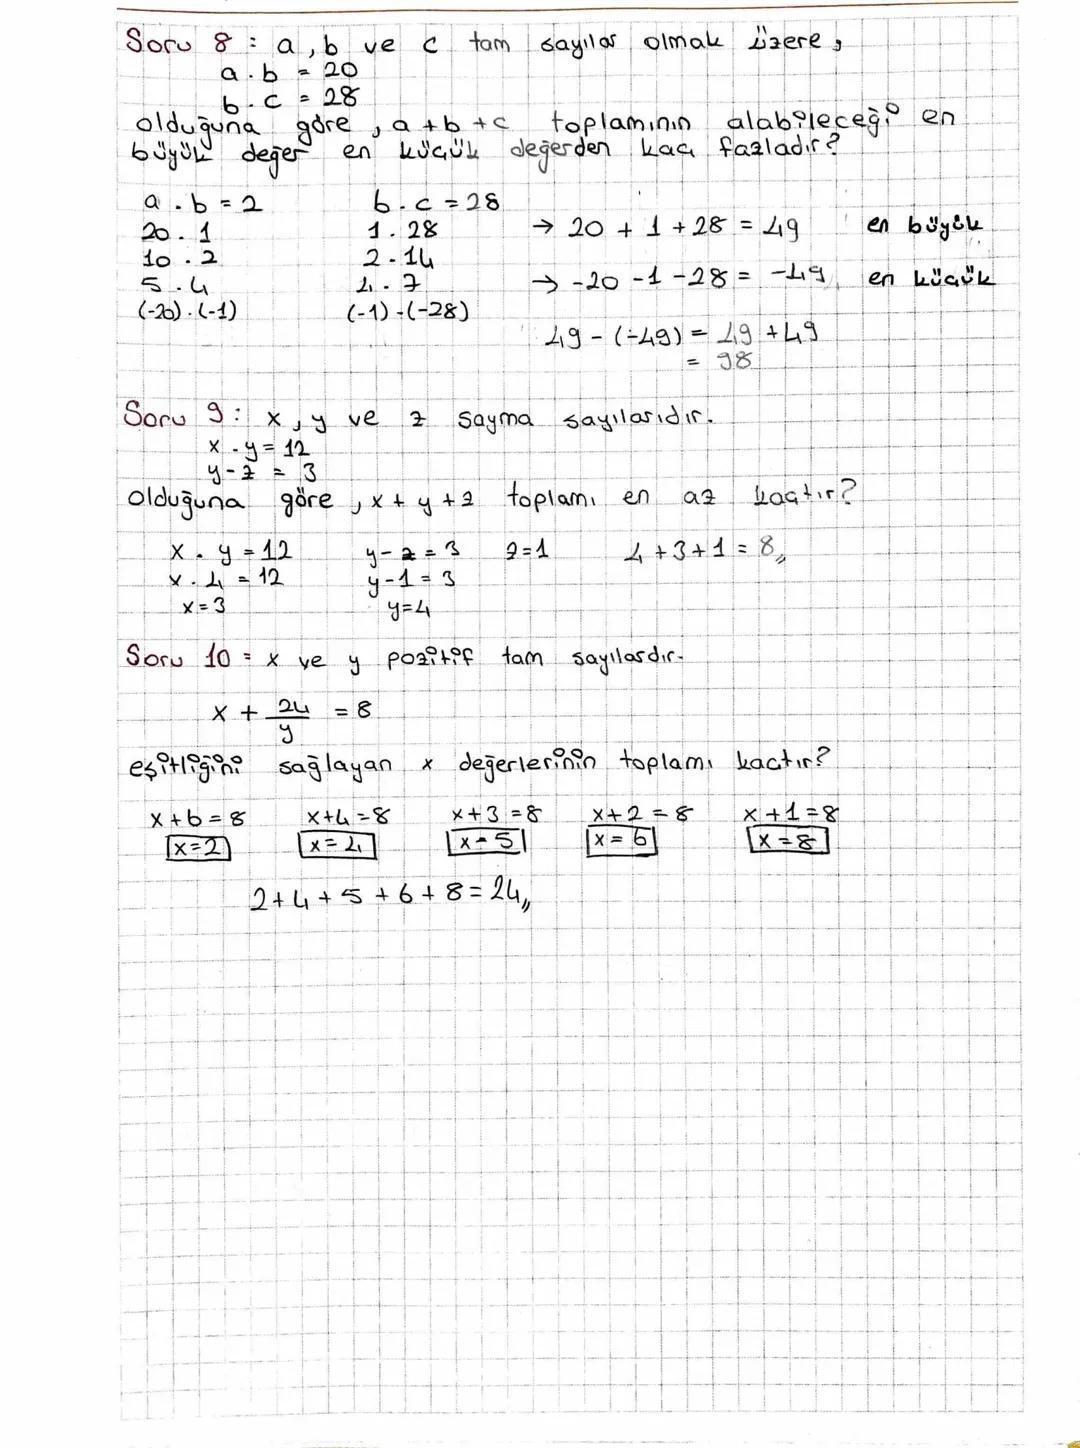 Soru 8 : a, b ve c tam sayılar olmak üzere,
a . b = 20
b . c = 28
olduğuna göre, a + b + c toplamının alabileceği en
büyük değer en küçük değerden kaç fazladır?
a . b = 2 b . c = 28
20 . 1 1 . 28 → 20 + 1 + 28 = 49 en büyük
10 . 2 2 . 14
5 . 4 4 . 7 → -20 - 1 - 28 = -49 en küçük
(-20) . (-1) (-1) . (-28)
49 - (-49) = 49 + 49
= 98
Soru 9 : x, y ve z sayma sayılarıdır.
x . y = 12
y - z = 3
olduğuna göre, x + y + z toplamı en az kaçtır?
x . y = 12 y - z = 3 z = 1 4 + 3 + 1 = 8,,
x . 4 = 12 y - 1 = 3
x = 3 y = 4
Soru 10 = x ve y pozitif tam sayılardır.
x + 24/y = 8
eşitliğini sağlayan x değerlerinin toplamı kaçtır?
x + 6 = 8 x + 4 = 8 x + 3 = 8 x + 2 = 8 x + 1 = 8
x = 2 x = 4 x = 5 x = 6 x = 8
2 + 4 + 5 + 6 + 8 = 24,,